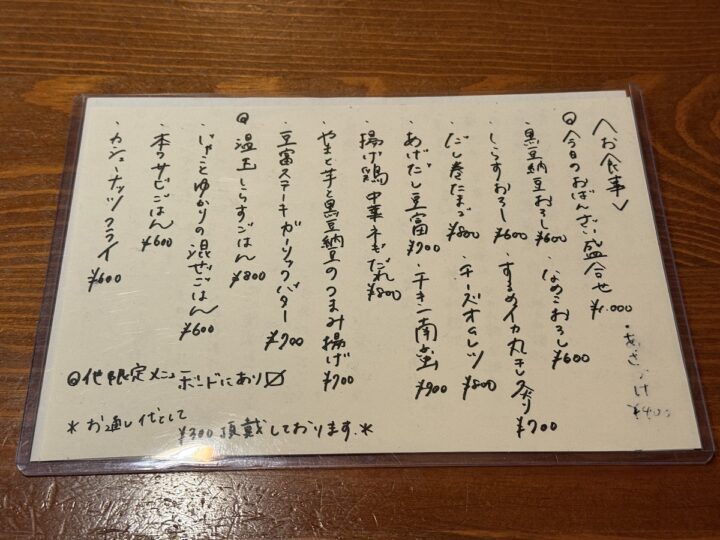 〈お食事〉
◎今日のおばんざい盛合せ ¥1,000
・あさづけ ¥400
・黒豆納豆おろし ¥600
・なめこおろし ¥600
・しらすおろし ¥600
・するめイカ丸干し炙り ¥700
・だし巻たまご ¥800
・チーズオムレツ ¥800
・あげだし豆富 ¥700
・チキン南蛮 ¥900
・揚げ鶏 中華ネギだれ ¥800
・やまと芋と黒豆納豆のつまみ揚げ ¥700
・豆富ステーキガーリックバター ¥700
◎温玉しらすごはん ¥800
・じゃことゆかりの混ぜごはん ¥600
・本ワサビごはん ¥600
・カシューナッツフライ ¥600
◎他限定メニューボードにあり
*お通し代として
¥300頂戴しております.*